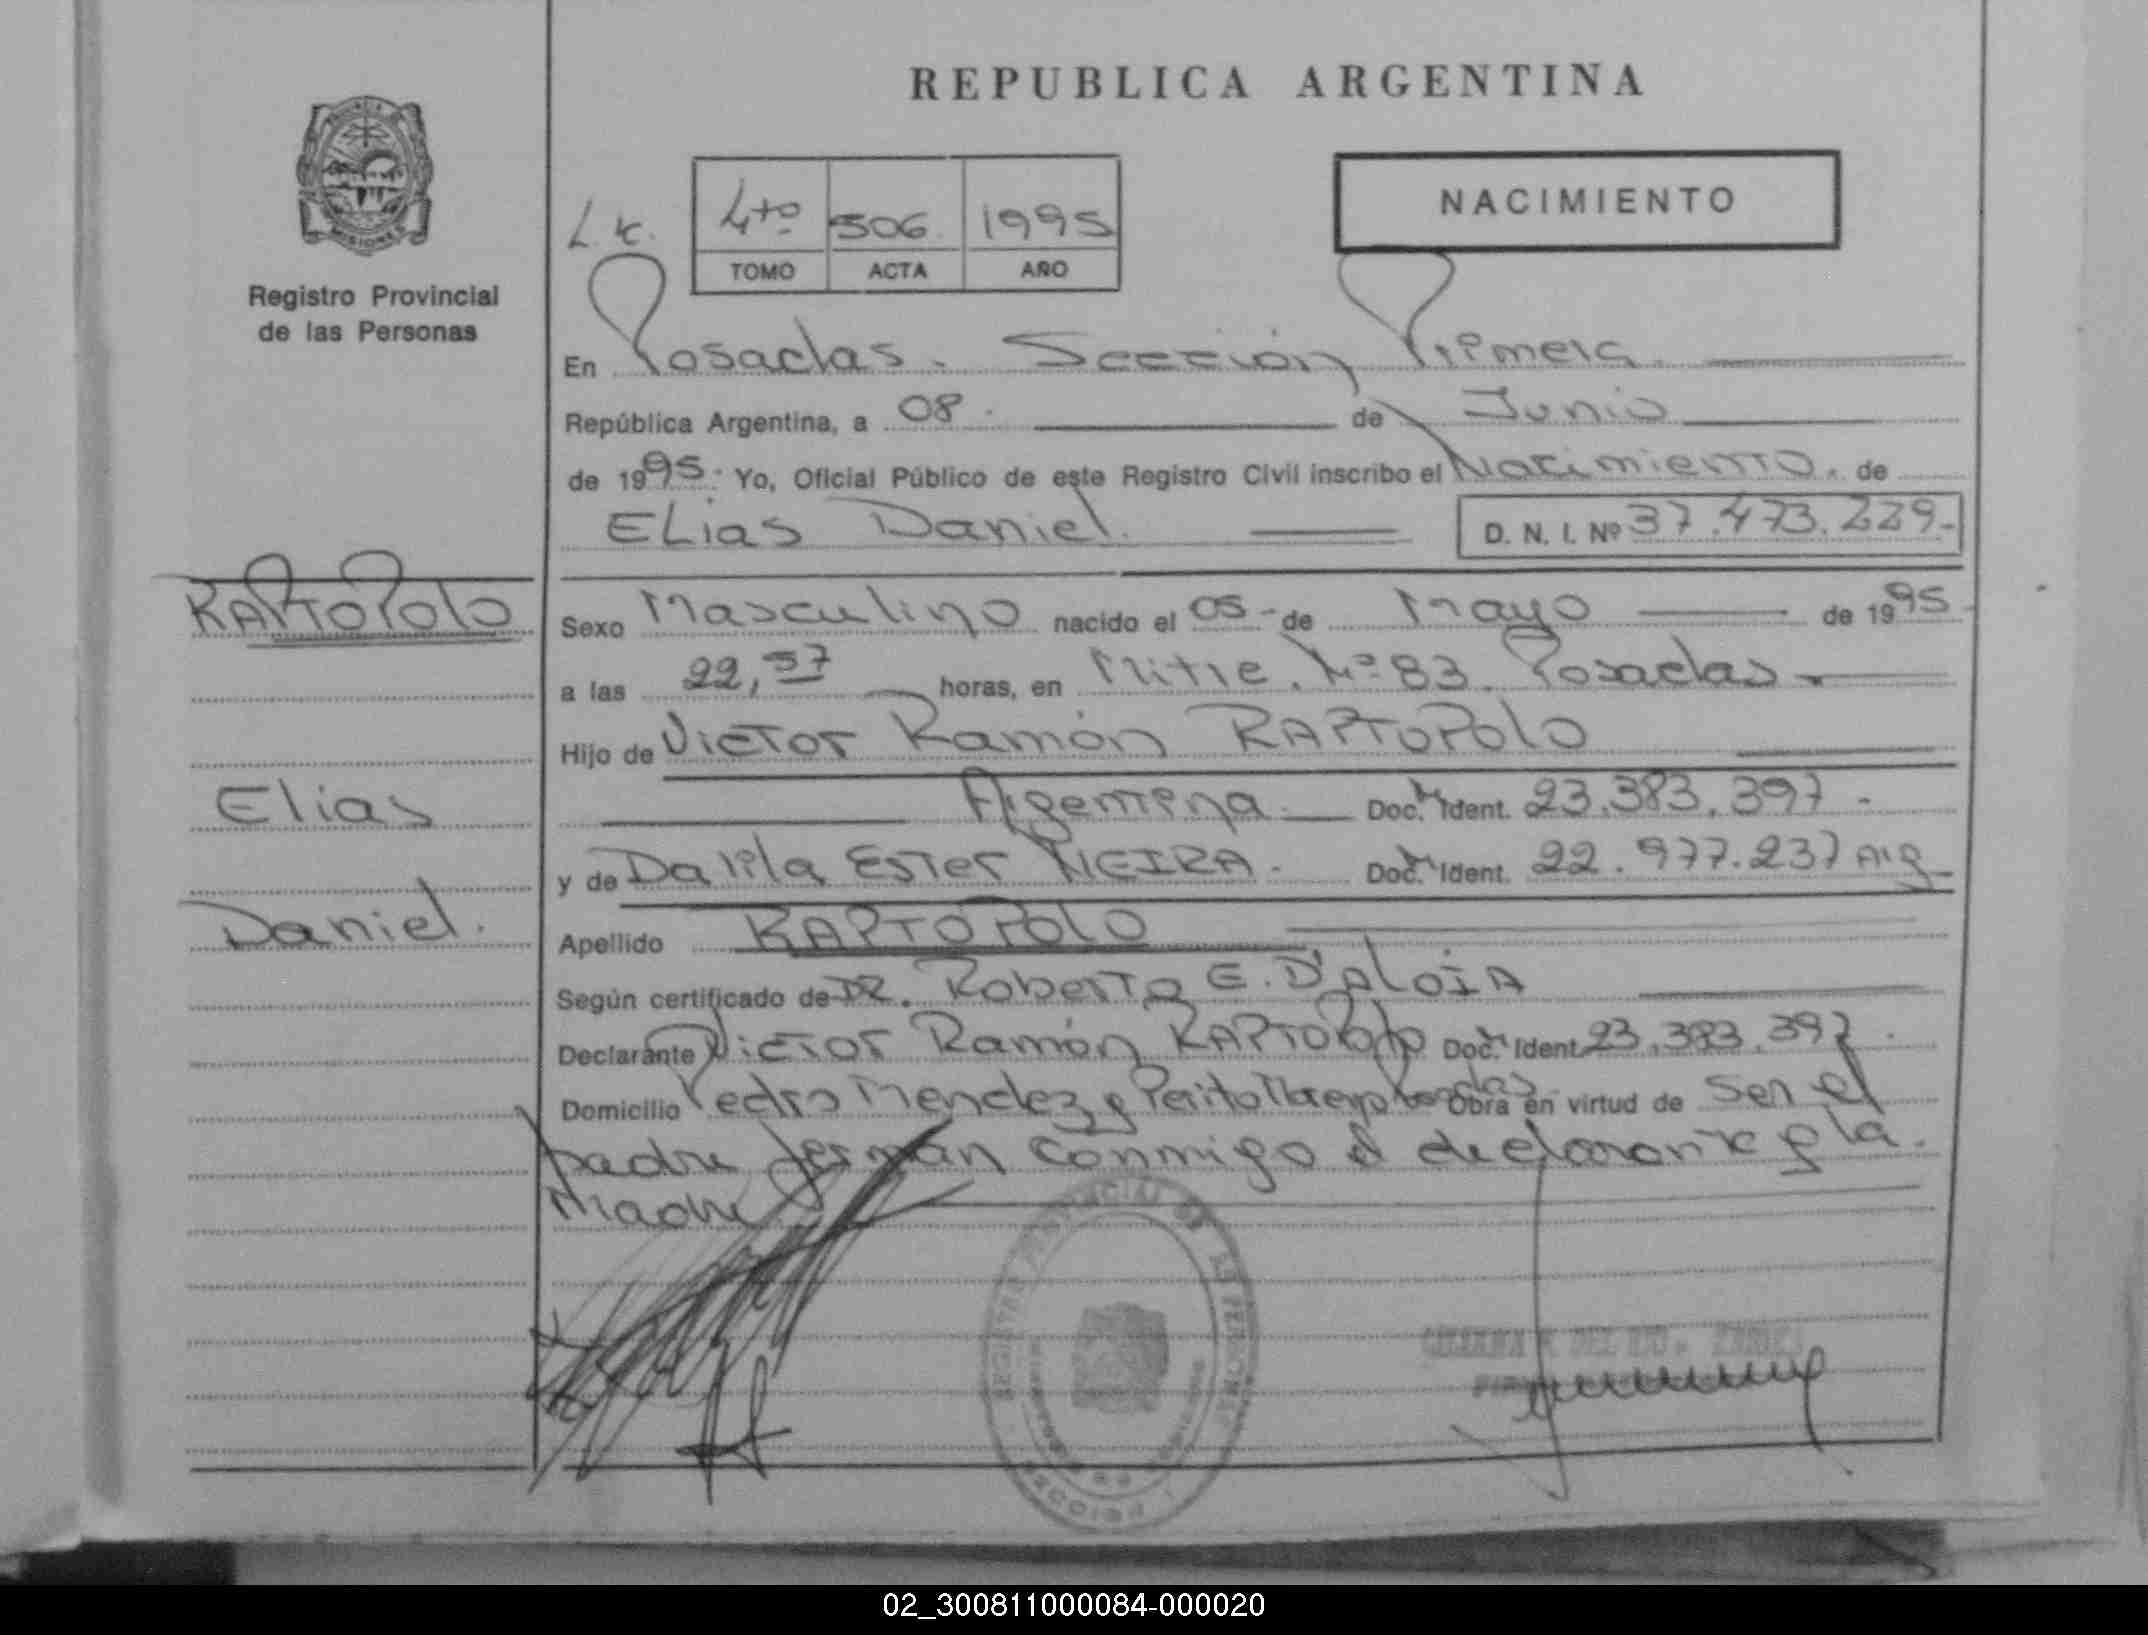 REPUBLICA ARGENTINA
MISIONES
Registro Provincial
de las Personas
4to 506 1995
TOMO ACTA AÑO
NACIMIENTO
En Posadas. Sección Primera
República Argentina, a 08 de Junio
de 1995 Yo, Oficial Público de este Registro Civil inscribo el Nacimiento. de
Elias Daniel. D. N. I. Nº 37.473.229-
RAPTOPOLO
Elias
Daniel.
Sexo Masculino nacido el 05 - de Mayo de 1995
a las 22,57 horas, en Mitre. Nº 83. Posadas
Hijo de Victor Ramón RAPTOPOLO
Argentina Doc. Ident. 23.383.397 -
y de Dalila Ester NEIRA - Doc. Ident. 22.977.237 Arg
Apellido RAPTOPOLO
Según certificado de DR. Roberto E. D'ALOIA
Declarante Victor Ramón RAPTOPOLO Doc. Ident. 23.383.397.
Domicilio Pedro Mendez y Perito Moreno Posadas Obra en virtud de ser el
padre firman conmigo el declarante y la
Madre
REGISTRO PROVINCIAL DE LAS PERSONAS
02_300811000084-000020